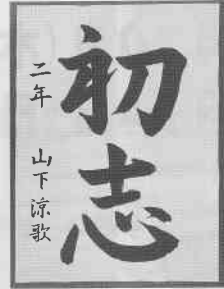 初志
二年 山下涼歌